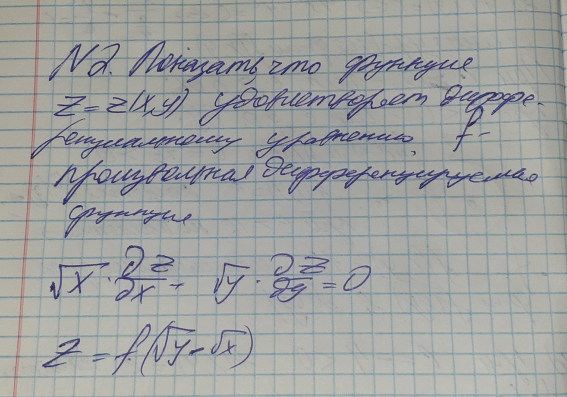 N2. Показать, что функция
z = z(x,y) удовлетворяет диффе-
ренциальному уравнению, f-
произвольная дифференцируемая
функция
√x · ∂z/∂x + √y · ∂z/∂y = 0
z = f(√y - √x)